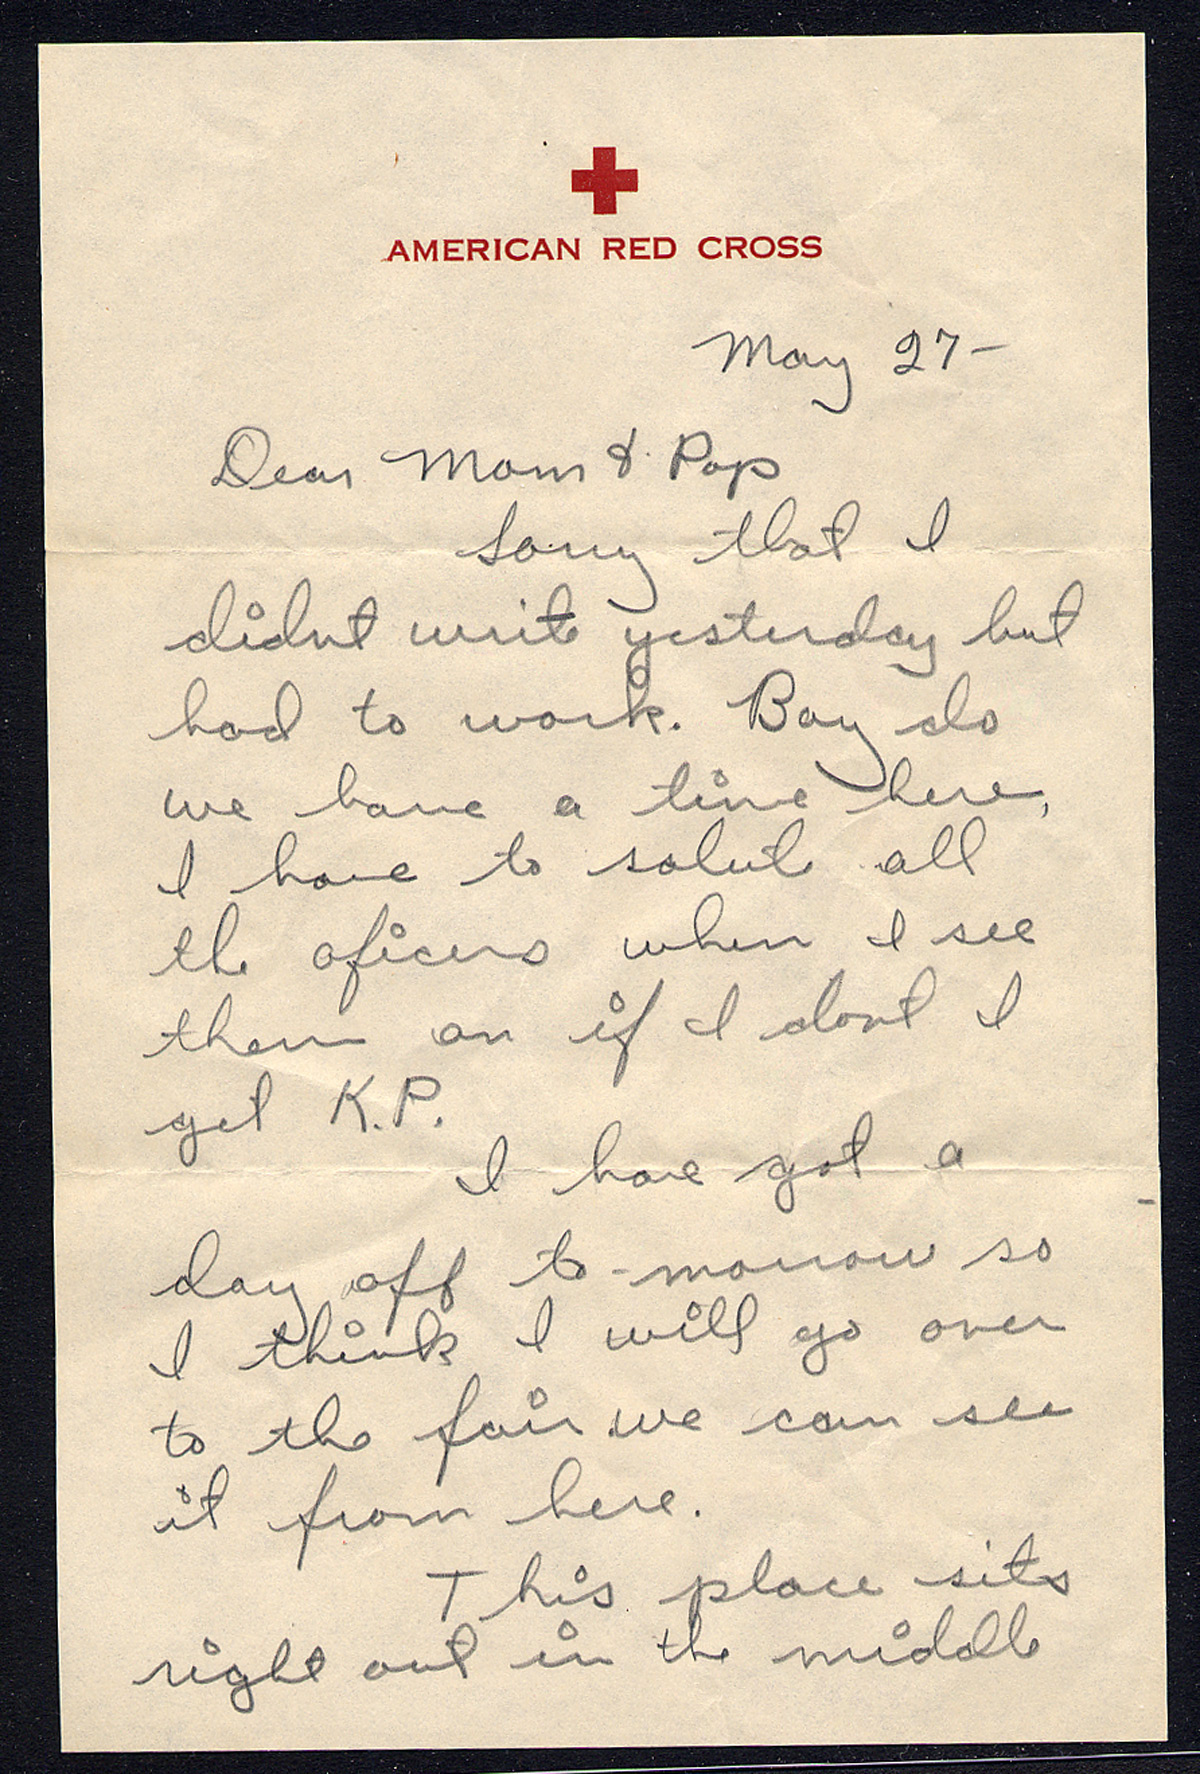 AMERICAN RED CROSS
May 27-
Dear Mom & Pop
Sorry that I
didnt write yesterday but
had to work. Boy do
we have a time here,
I have to salute all
the oficers when I see
them an if I dont I
get K.P.
I have got a
day off to-morrow so
I think I will go over
to the fair we can see
it from here.
This place sits
right out in the middle